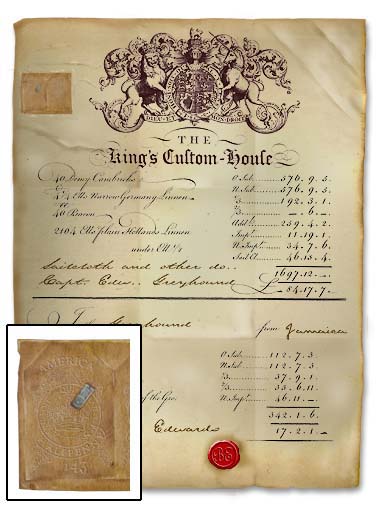 DIEU ET MON DROIT
THE
King's Custom-House
40 Demy Cambricks
O Sub. 576. 9. 5.
N. Sub. 576. 9. 5.
4/4 Ells Narrow Germany Linnen
⅓ 192. 3. 1.
40 Bacon
⅔ —. 6. —
Addl. 259. 4. 2.
2104 Ells plain Hollands Linnen
Imp! 11. 19. 1.
under Ell
N. Imp! 34. 7. 6.
Sail Cl. 46. 13. 4.
Sailcloth and other do..
1697. 12. —
Capt. Edw. Greyhound
£ 84. 17. 7.
Greyhound from Jamaica
O Sub. 112. 7. 3.
N. Sub. 112. 7. 3.
⅓ 37. 9. 1.
⅔ 33. 6. 11.
of the Gro.
N. Imp! 46. 11. —
342. 1. 6.
Edwards
17. 2. 1. —
AMERICA
HALFPENNY
145